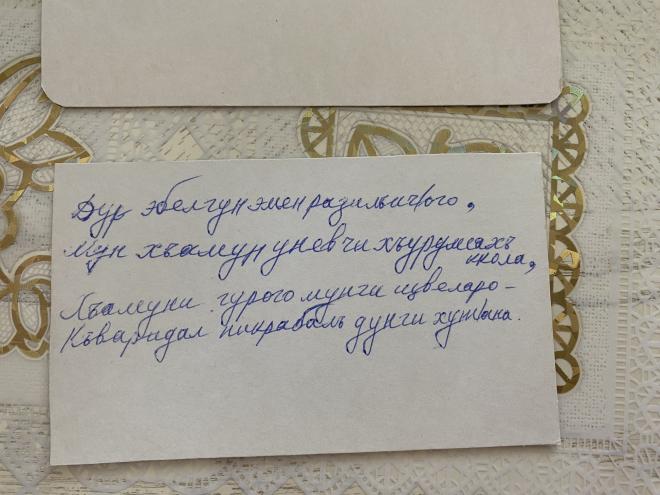 Дур эбелгун эмен разилъичIого,
Мун хъамун уневчи хъурумсахъ
ккола,
Хъамуни гурого мунги щвеларо –
Къваридал пикрабалъ дунги хутIана.